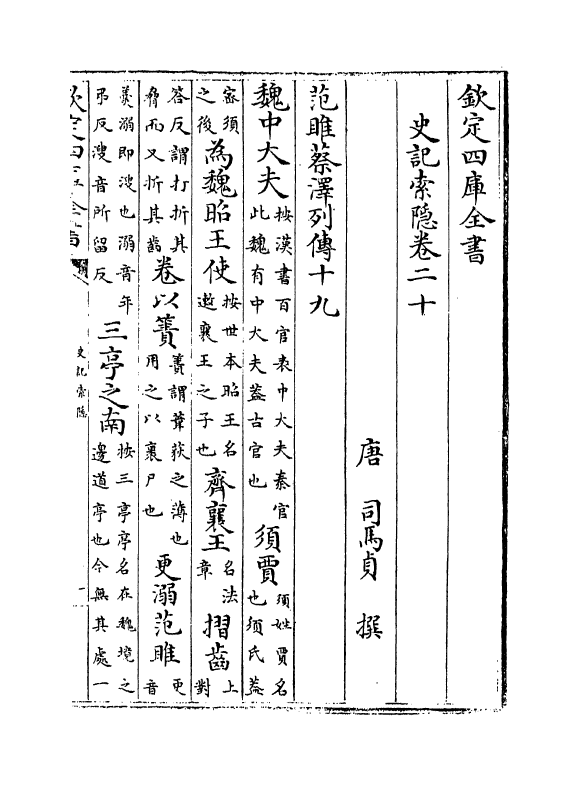 欽定四庫全書
史記索隱卷二十
唐 司馬貞 撰
范雎蔡澤列傳十九
魏中大夫按漢書百官表中大夫秦官此魏有中大夫葢古官也須賈須姓賈名也須氏葢
密須之後為魏昭王使按世本昭王名遫襄王之子也齊襄王名法章摺齒上對
答反謂打折其脅而又折其齒卷以簀簀謂葦荻之薄也用之以裹尸也更溺范雎更音
羮溺即溲也溺音年弔反溲音所留反三亭之南按三亭亭名在魏境之邊道亭也今無其處一
欽定四庫全書
史記索隱
一